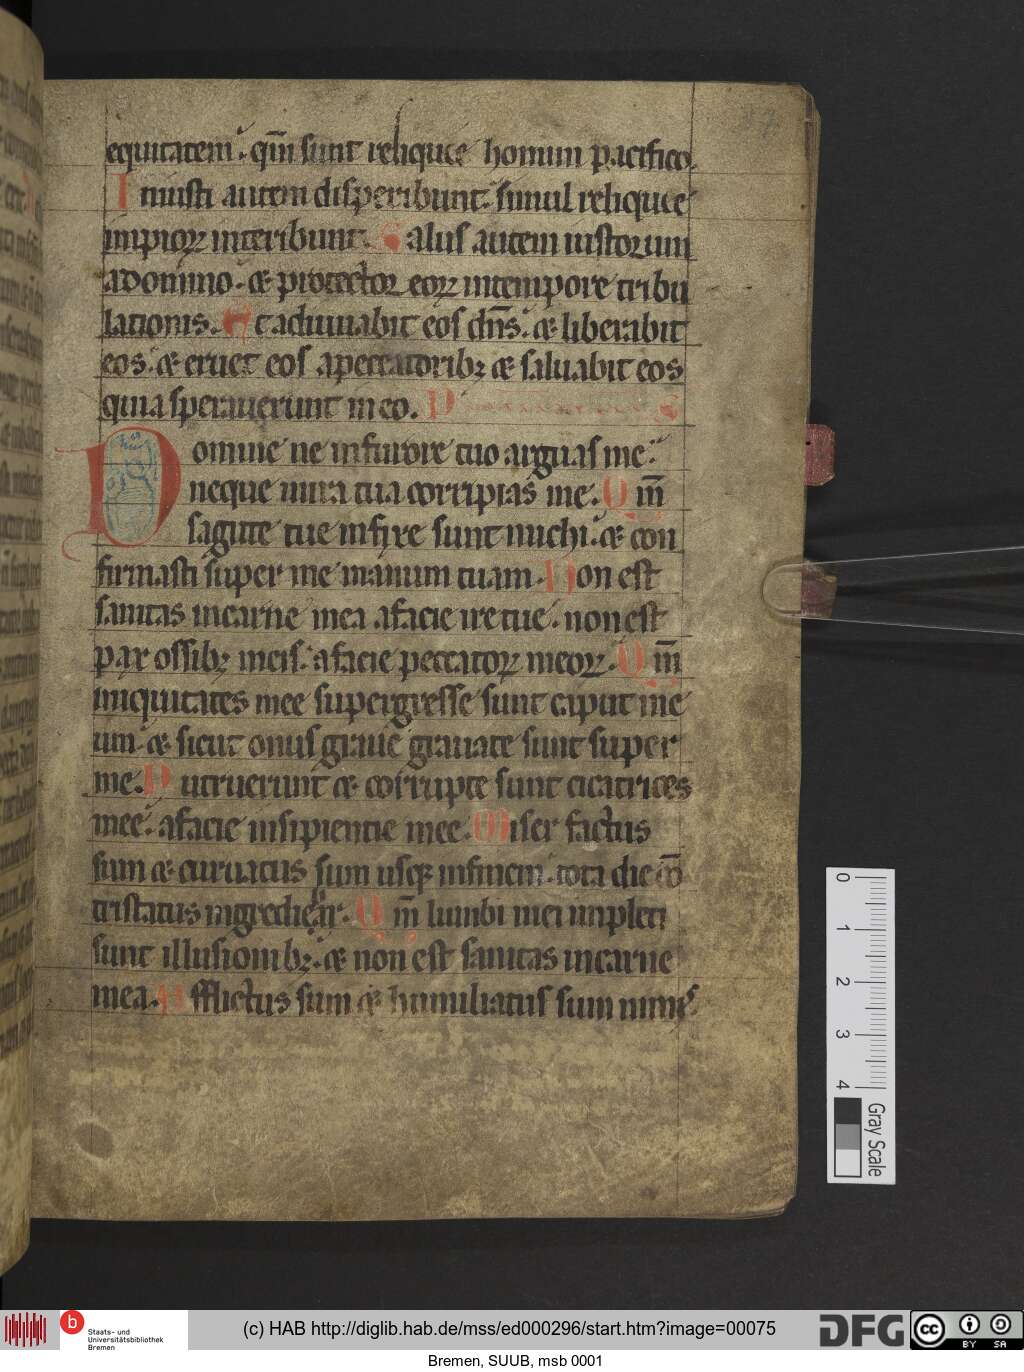 equitatem. qm̄ sunt reliquie homini pacifico.
Iniusti autem disperibunt simul reliquie
impioꝝ interibunt. Salus autem iustorum
a domino. & protector eoꝝ in tempore tribu
lationis. Et adiuuabit eos dn̄s. & liberabit
eos. & eruet eos a peccatoribꝫ & saluabit eos
quia sperauerunt in eo. P
Domine ne in furore tuo arguas me.
neque in ira tua corripias me. Qm̄
sagitte tue infixe sunt michi. & con
firmasti super me manum tuam. Non est
sanitas in carne mea a facie ire tue. non est
pax ossibꝫ meis. a facie peccatoꝝ meoꝝ. Qm̄
iniquitates mee supergresse sunt caput me
um. & sicut onus graue grauate sunt super
me. Putruerunt & corrupte sunt cicatrices
mee. a facie insipientie mee. Miser factus
sum & curuatus sum usqꝫ in finem. tota die cō
tristatus ingrediebar. Qm̄ lumbi mei impleti
sunt illusionibꝫ. & non est sanitas in carne
mea. Afflictus sum & humiliatus sum nimis
0
1
2
3
4
Gray Scale
b
Staats- und
Universitätsbibliothek
Bremen
(c) HAB http://diglib.hab.de/mss/ed000296/start.htm?image=00075
DFG
cc
BY SA
Bremen, SUUB, msb 0001